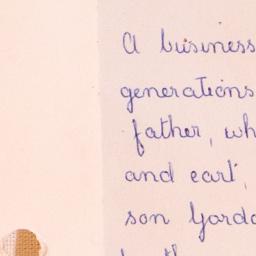 a business
generations
father, wh
and eart,
son Yardo